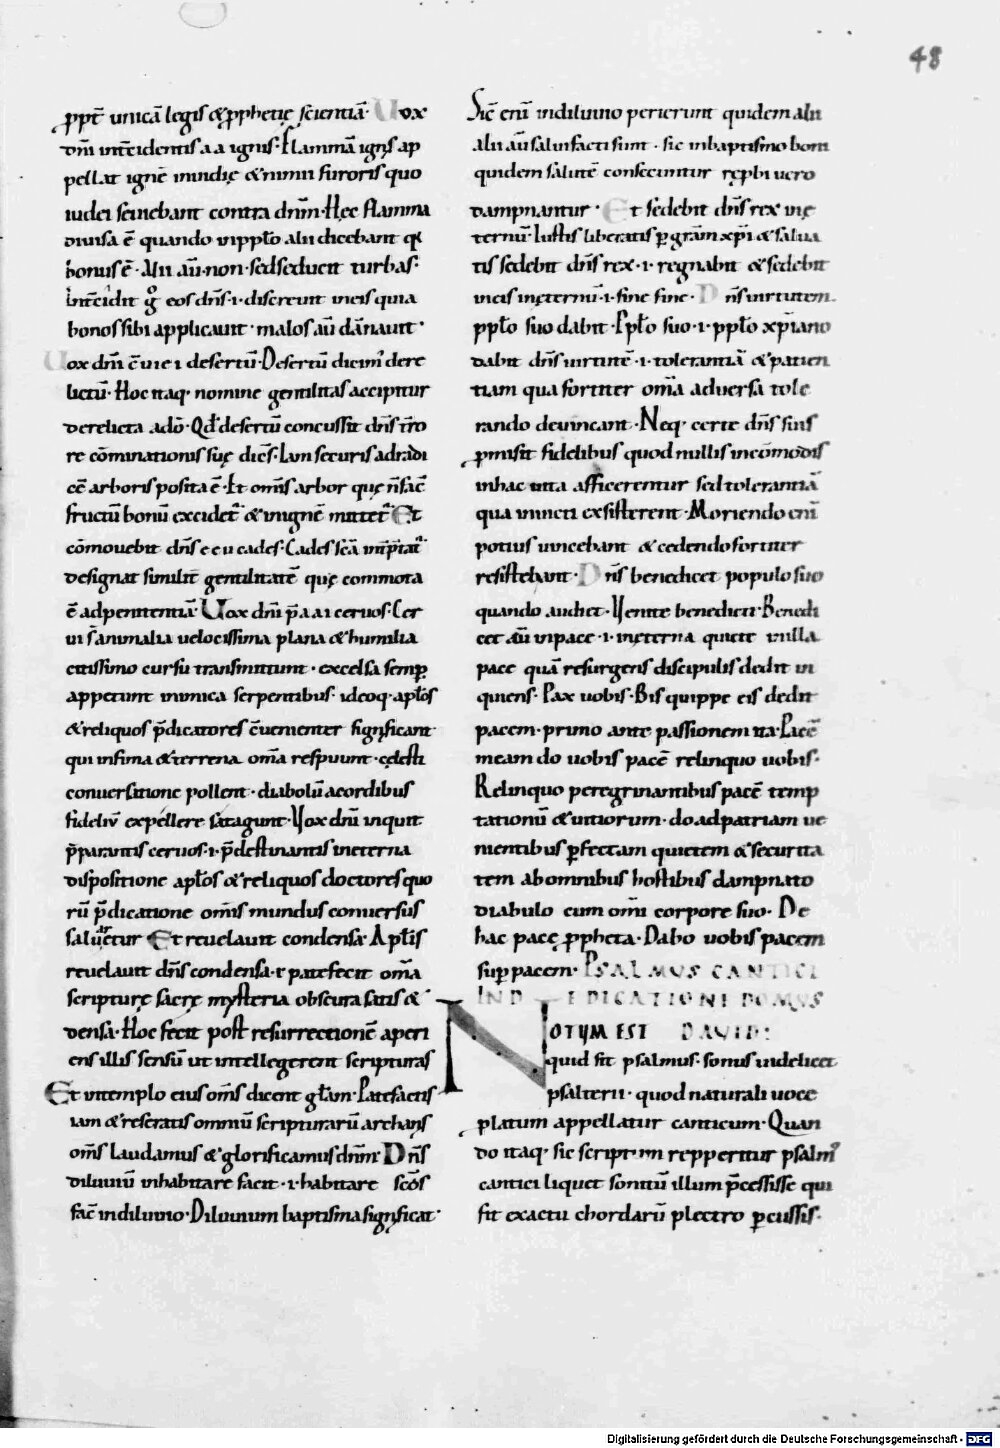 48
ꝓpt̄ unicā legis & ꝓphetię scientiā. Vox
dn̄i int̄cidentis aa ignis. Flammā ignis ap
pellat ignē inuidię & nimii furoris quo
iudei seuiebant contra dn̄m. Hęc flamma
diuisa ē quando in pp̄lo alii dicebant qđ
bonus ē. Alii aū. non. sed seducit turbas.
Int̄cidit g̊ eos dn̄s .i. discreuit in eis quia
bonos sibi applicauit. malos aū dānauit.
Vox dn̄i c̄u ie i desertū. Desertū dicim' dere
lictū. Hoc itaq. nomine gentilitas accipitur
derelicta a dō. Qđ desertū concussit dn̄s t̄ro
re cōminationis suę dicēs. Iam securis ad radi
cē arboris posita ē. Et omīs arbor quę n̄ facit
fructū bonū excidet & in ignē mittet. Et
cōmouebit dn̄s e eu cades. Cades scā int̄p̄tat'
designat similit̄ gentilitatē quę commota
ē ad penitentiā. Vox dn̄i p̄aai ceruos. Cer
ui s̄ animalia uelocissima plana & humilia
citissimo cursu transmittunt. excelsa semp̱
appetunt inimica serpentibus. ideoq. apl̄os
& reliquos p̄dicatores c̄uenienter significant
qui infima & terrena om̄a respuunt. cęlesti
conuersatione pollent. diabolū a cordibus
fideliū expellere satagunt. Vox dn̄i inquit
p̄parantis ceruos .i. p̄destinantis in eterna
dispositione apl̄os & reliquos doctores quo
rū p̄dicatione om̄is mundus conuersus
saluaretur. Et reuelauit condensa. Apl̄is
reuelauit dn̄s condensa .i. patefecit om̄a
scripturę sacrę mysteria obscura satis &
densa. Hoc fecit post resurrectionē aperi
ens illis sensū ut intellegerent scripturas
Et in templo eius om̄s dicent gl̄am. Patefactis
iam & reseratis omniū scripturarū archanis
om̄s laudamus & glorificamus dn̄m. Dn̄s
diluuiū inhabitare facit .i. habitare scōs
fac̄ in diluuio. Diluuium baptisma significat.
Sic̄ eni in diluuio perierunt quidem alii
alii aū salui facti sunt. sic in baptismo boni
quidem salutē consecuntur rępbi uero
dampnantur. Et sedebit dn̄s rex in ę
ternū. Iustis liberatis p̱ grām xp̄i & salua
tis sedebit dn̄s rex .i. regnabit & sedebit
in eis in ęternū .i. sine fine. Dn̄s uirtutem
pp̄lo suo dabit. Pp̄lo suo .i. pp̄lo xp̄iano
dabit dn̄s uirtutē .i. tolerantiā & patien
tiam qua fortiter om̄a aduersa tole
rando deuincant. Neq. certe dn̄s suis
p̱misit fidelibus quod nullis incōmodis
in hac uita afficerentur sed tolerantiā
qua inuicti exsisterent. Moriendo enī
potius uincebant & cedendo fortiter
resistebant. Dn̄s benedicet populo suo
quando audiet. Venite benedicti. Benedi
cet aū in pace .i. in ęterna quiete in illa
pace quā resurgens discipulis dedit in
quiens. Pax uobis. Bis quippe eis dedit
pacem. primo ante passionem ita. Pacē
meam do uobis pacē relinquo uobis.
Relinquo peregrinantibus pacē temp
tationū & uitiorum. do ad patriam ue
nientibus p̱fectam quietem & securita
tem ab omnibus hostibus dampnato
diabulo cum om̄i corpore suo. De
hac pace ꝓpheta. Dabo uobis pacem
sup̱ pacem. PSALMVS CANTICI
IN DEDICATIONI DOMVS
NOTVM EST DAVID:
quid sit psalmus. sonus uidelicet
psalterii. quod naturali uoce
platum appellatur canticum. Quan
do itaq. sic scriptum repperitur psalm'
cantici liquet sonitū illum p̄cessisse qui
fit ex actu chordarū plectro p̱cussis.
Digitalisierung gefördert durch die Deutsche Forschungsgemeinschaft - DFG